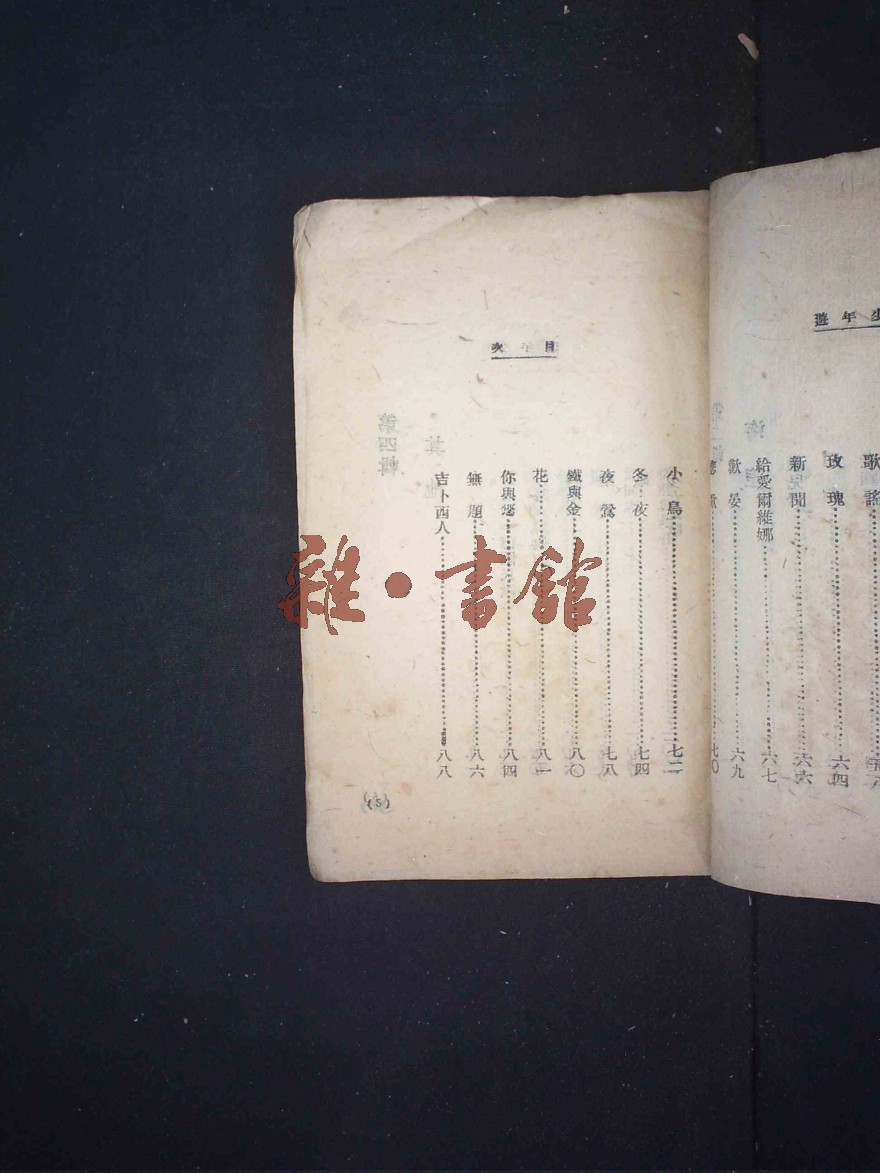 少年遊
歌謠
玫瑰……六四
新聞……六六
給愛爾維娜……六七
歡宴……六九
七〇
目次
小鳥……七二
冬夜……七四
夜鶯……七八
鐵與金……八〇
花……八二
你與您……八四
無題……八六
吉卜西人……八八
(5)
第四輯
雜·書館